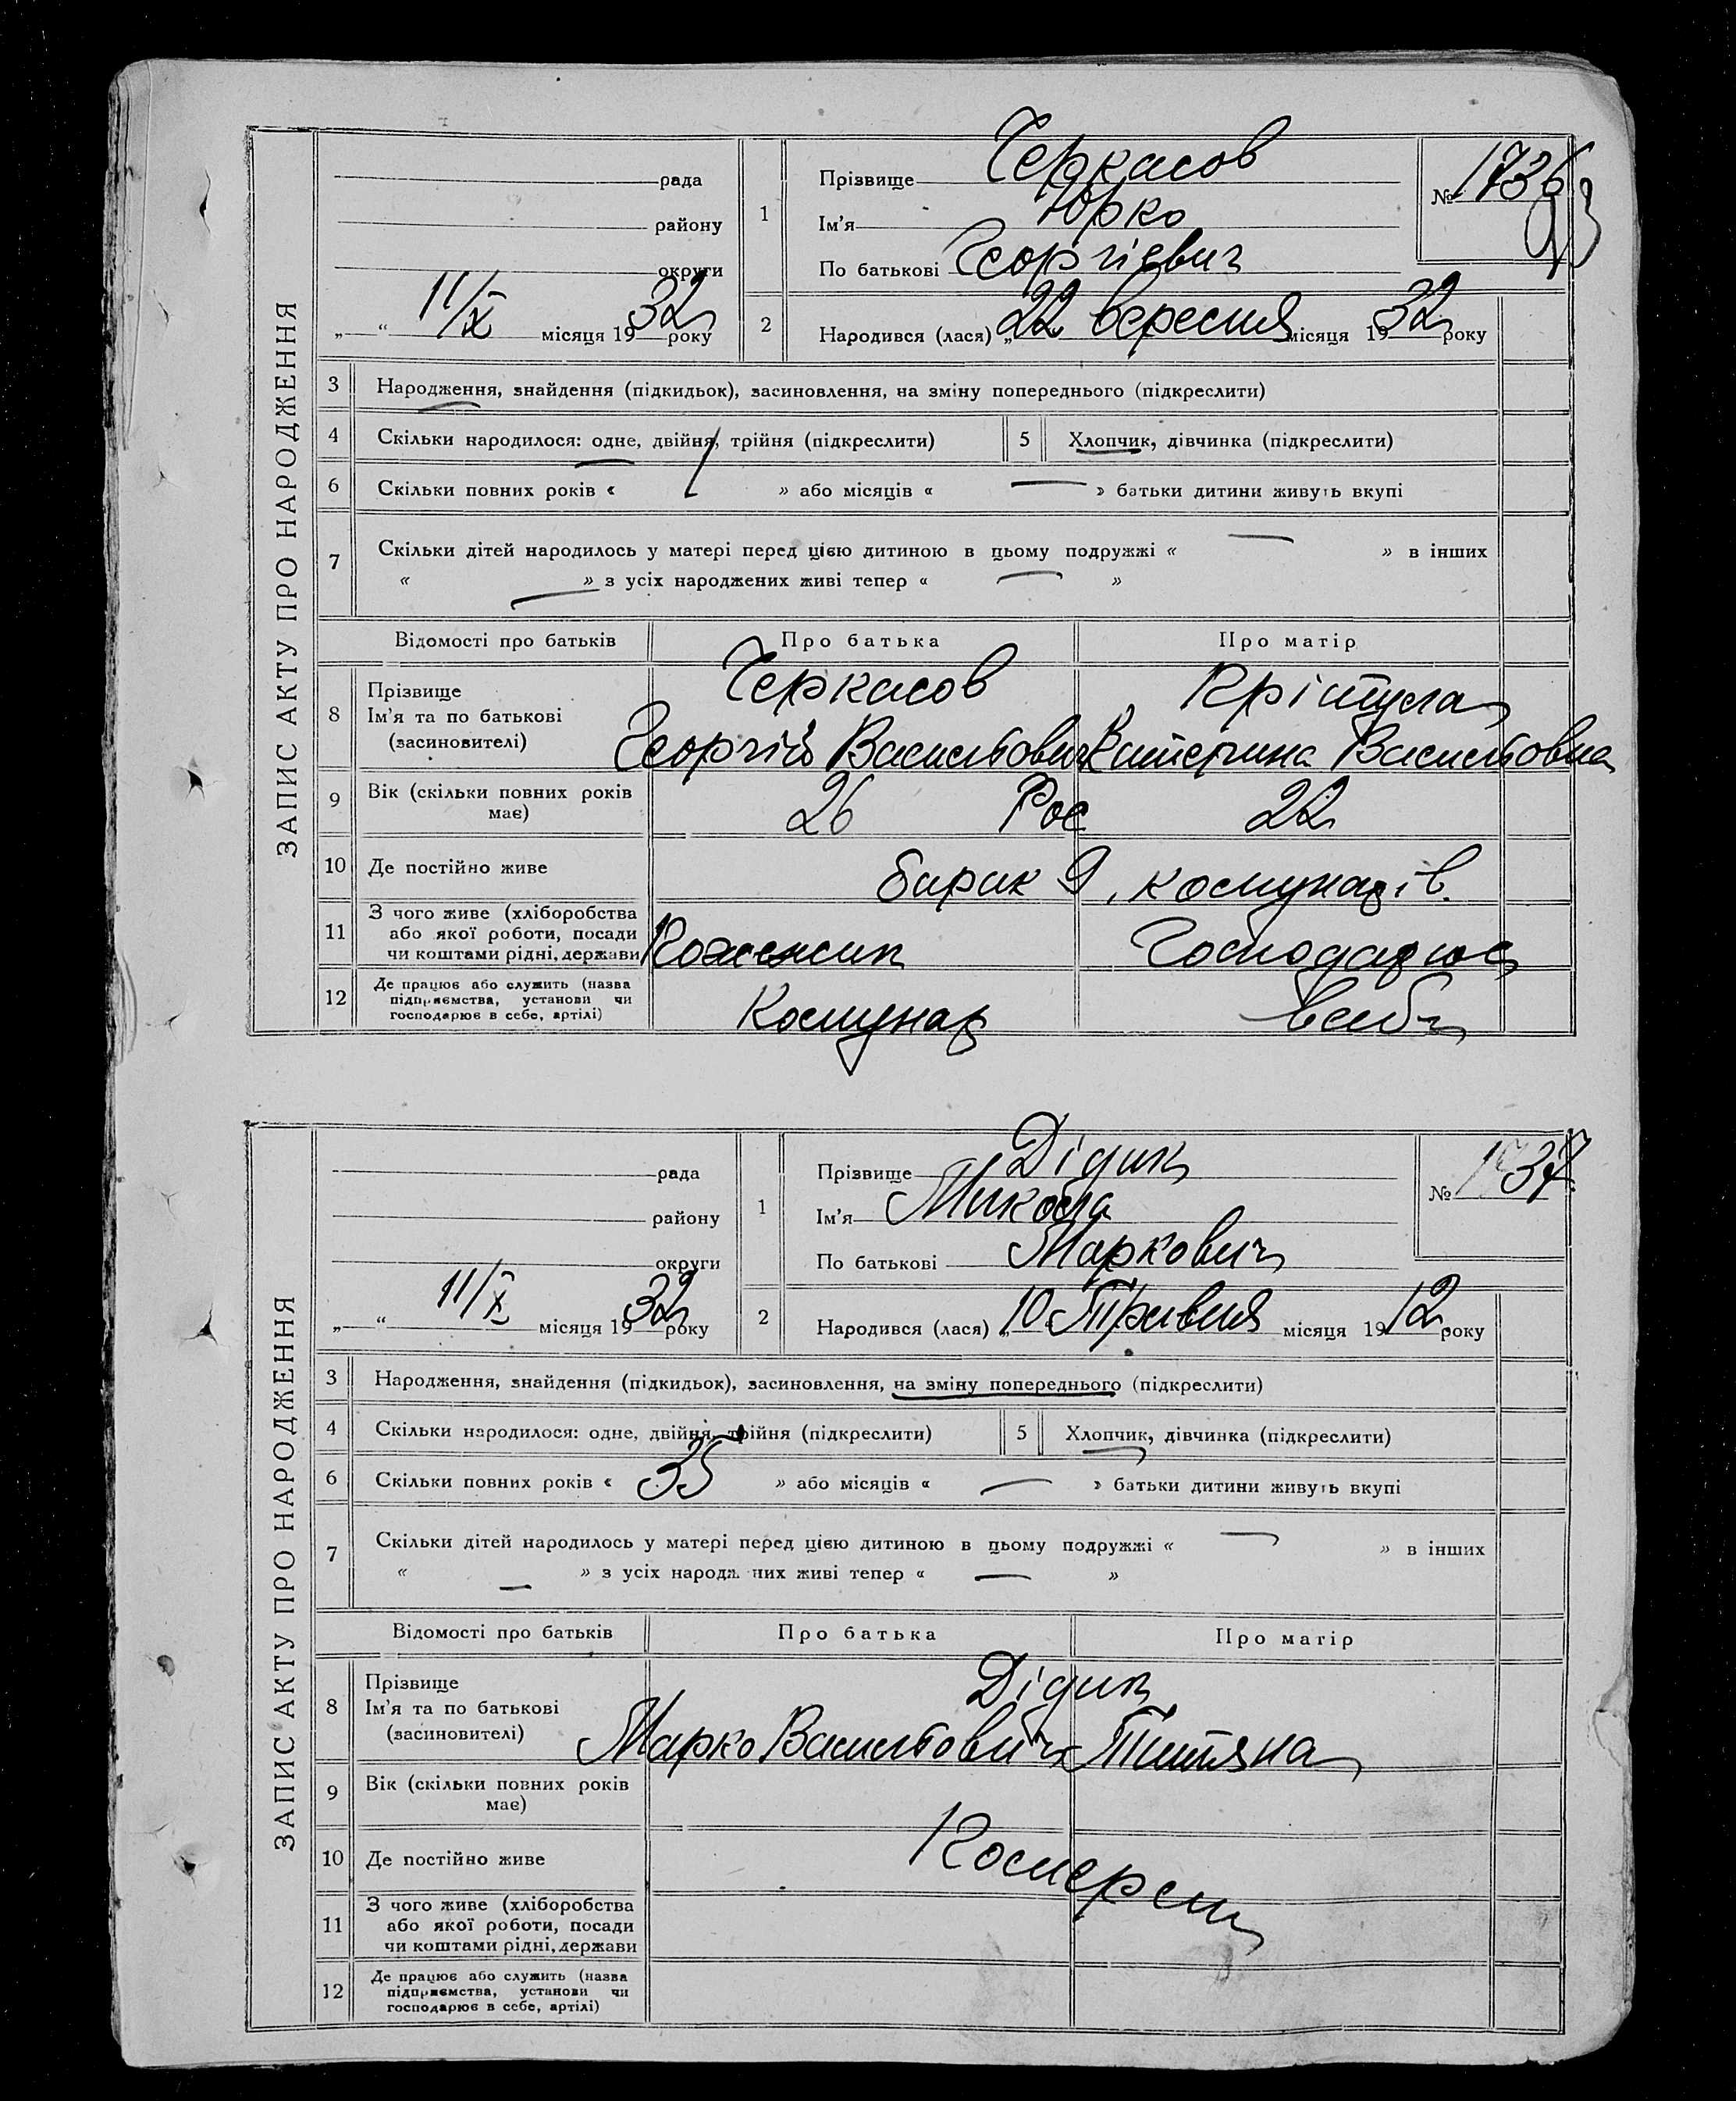 ЗАПИС АКТУ ПРО НАРОДЖЕННЯ
рада
району
округи
„ “ 11/X місяця 1932 року
1
Прізвище Черкасов
Ім'я Юрко
По батькові Георгієвич
№ 1736
2
Народився (лася) „22 вересня місяця 1932 року
3 Народження, знайдення (підкидьок), засиновлення, на зміну попереднього (підкреслити)
4 Скільки народилося: одне, двійня, трійня (підкреслити) 5 Хлопчик, дівчинка (підкреслити)
6 Скільки повних років « 1 » або місяців « — » батьки дитини живуть вкупі
7 Скільки дітей народилось у матері перед цією дитиною в цьому подружжі « — » в інших
« — » з усіх народжених живі тепер « — »
Відомості про батьків Про батька Про матір
8 Прізвище
Ім'я та по батькові
(засиновителі)
Черкасов
Георгій Васильович
Крітула
Катерина Васильовна
9 Вік (скільки повних років
має)
26 Рос 22
10 Де постійно живе барак 9, комунарів.
11 З чого живе (хліборобства
або якої роботи, посади
чи коштами рідні, держави
Господарює
12 Де працює або служить (назва
підприємства, установи чи
господарює в себе, артілі)
Комунар
ЗАПИС АКТУ ПРО НАРОДЖЕННЯ
рада
району
округи
„ “ 11/X місяця 1932 року
1
Прізвище Дідик
Ім'я Микола
По батькові Маркович
№ 1737
2
Народився (лася) „10 Травня місяця 1912 року
3 Народження, знайдення (підкидьок), засиновлення, на зміну попереднього (підкреслити)
4 Скільки народилося: одне, двійня, трійня (підкреслити) 5 Хлопчик, дівчинка (підкреслити)
6 Скільки повних років « 35 » або місяців « — » батьки дитини живуть вкупі
7 Скільки дітей народилось у матері перед цією дитиною в цьому подружжі « — » в інших
« — » з усіх народжених живі тепер « — »
Відомості про батьків Про батька Про матір
8 Прізвище
Ім'я та по батькові
(засиновителі)
Дідик
Марко Васильович Титяна
9 Вік (скільки повних років
має)
10 Де постійно живе
11 З чого живе (хліборобства
або якої роботи, посади
чи коштами рідні, держави
12 Де працює або служить (назва
підприємства, установи чи
господарює в себе, артілі)